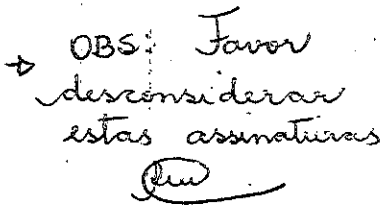 → OBS: Favor
desconsiderar
estas assinaturas